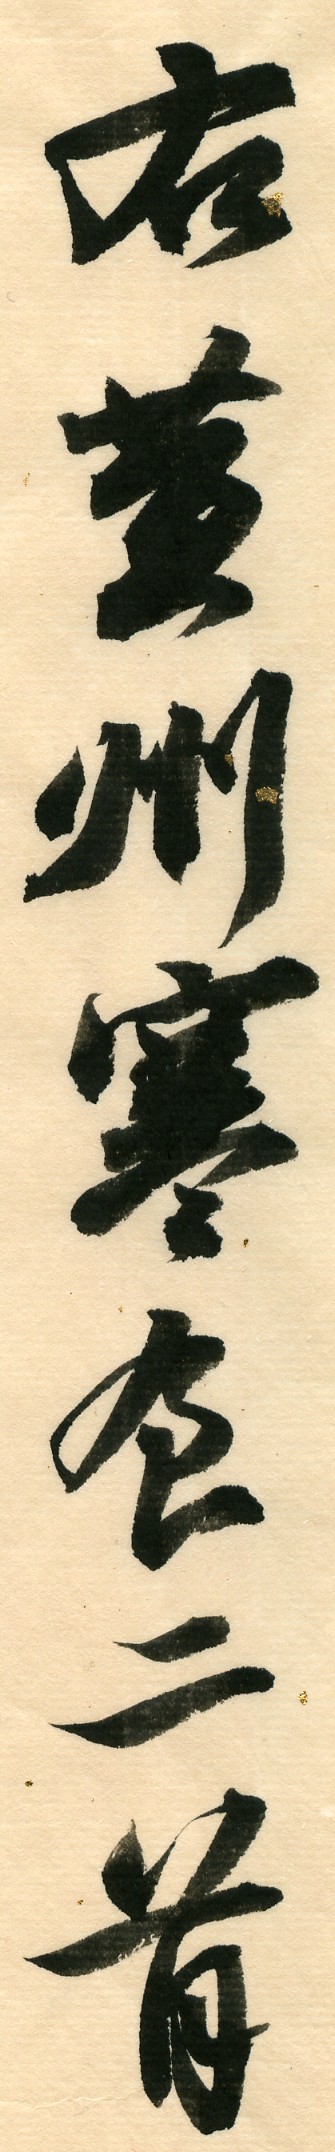 右黃州寒食二首